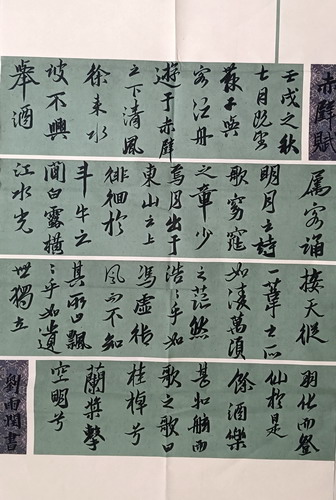 赤壁賦
壬戌之秋
七月既望
蘇子與
客泛舟
遊于赤壁
之下清風
徐來水
波不興
舉酒
屬客誦
明月之詩
歌窈窕
之章少
焉月出于
東山之上
徘徊於
斗牛之
間白露橫
江水光
接天縱
一葦之所
如凌萬頃
之茫然
浩〻乎如
馮虛御
風而不知
其所止飄
〻乎如遺
世獨立
羽化而登
仙於是
飲酒樂
甚扣舷而
歌之歌曰
桂棹兮
蘭槳擊
空明兮
劉雨潤書